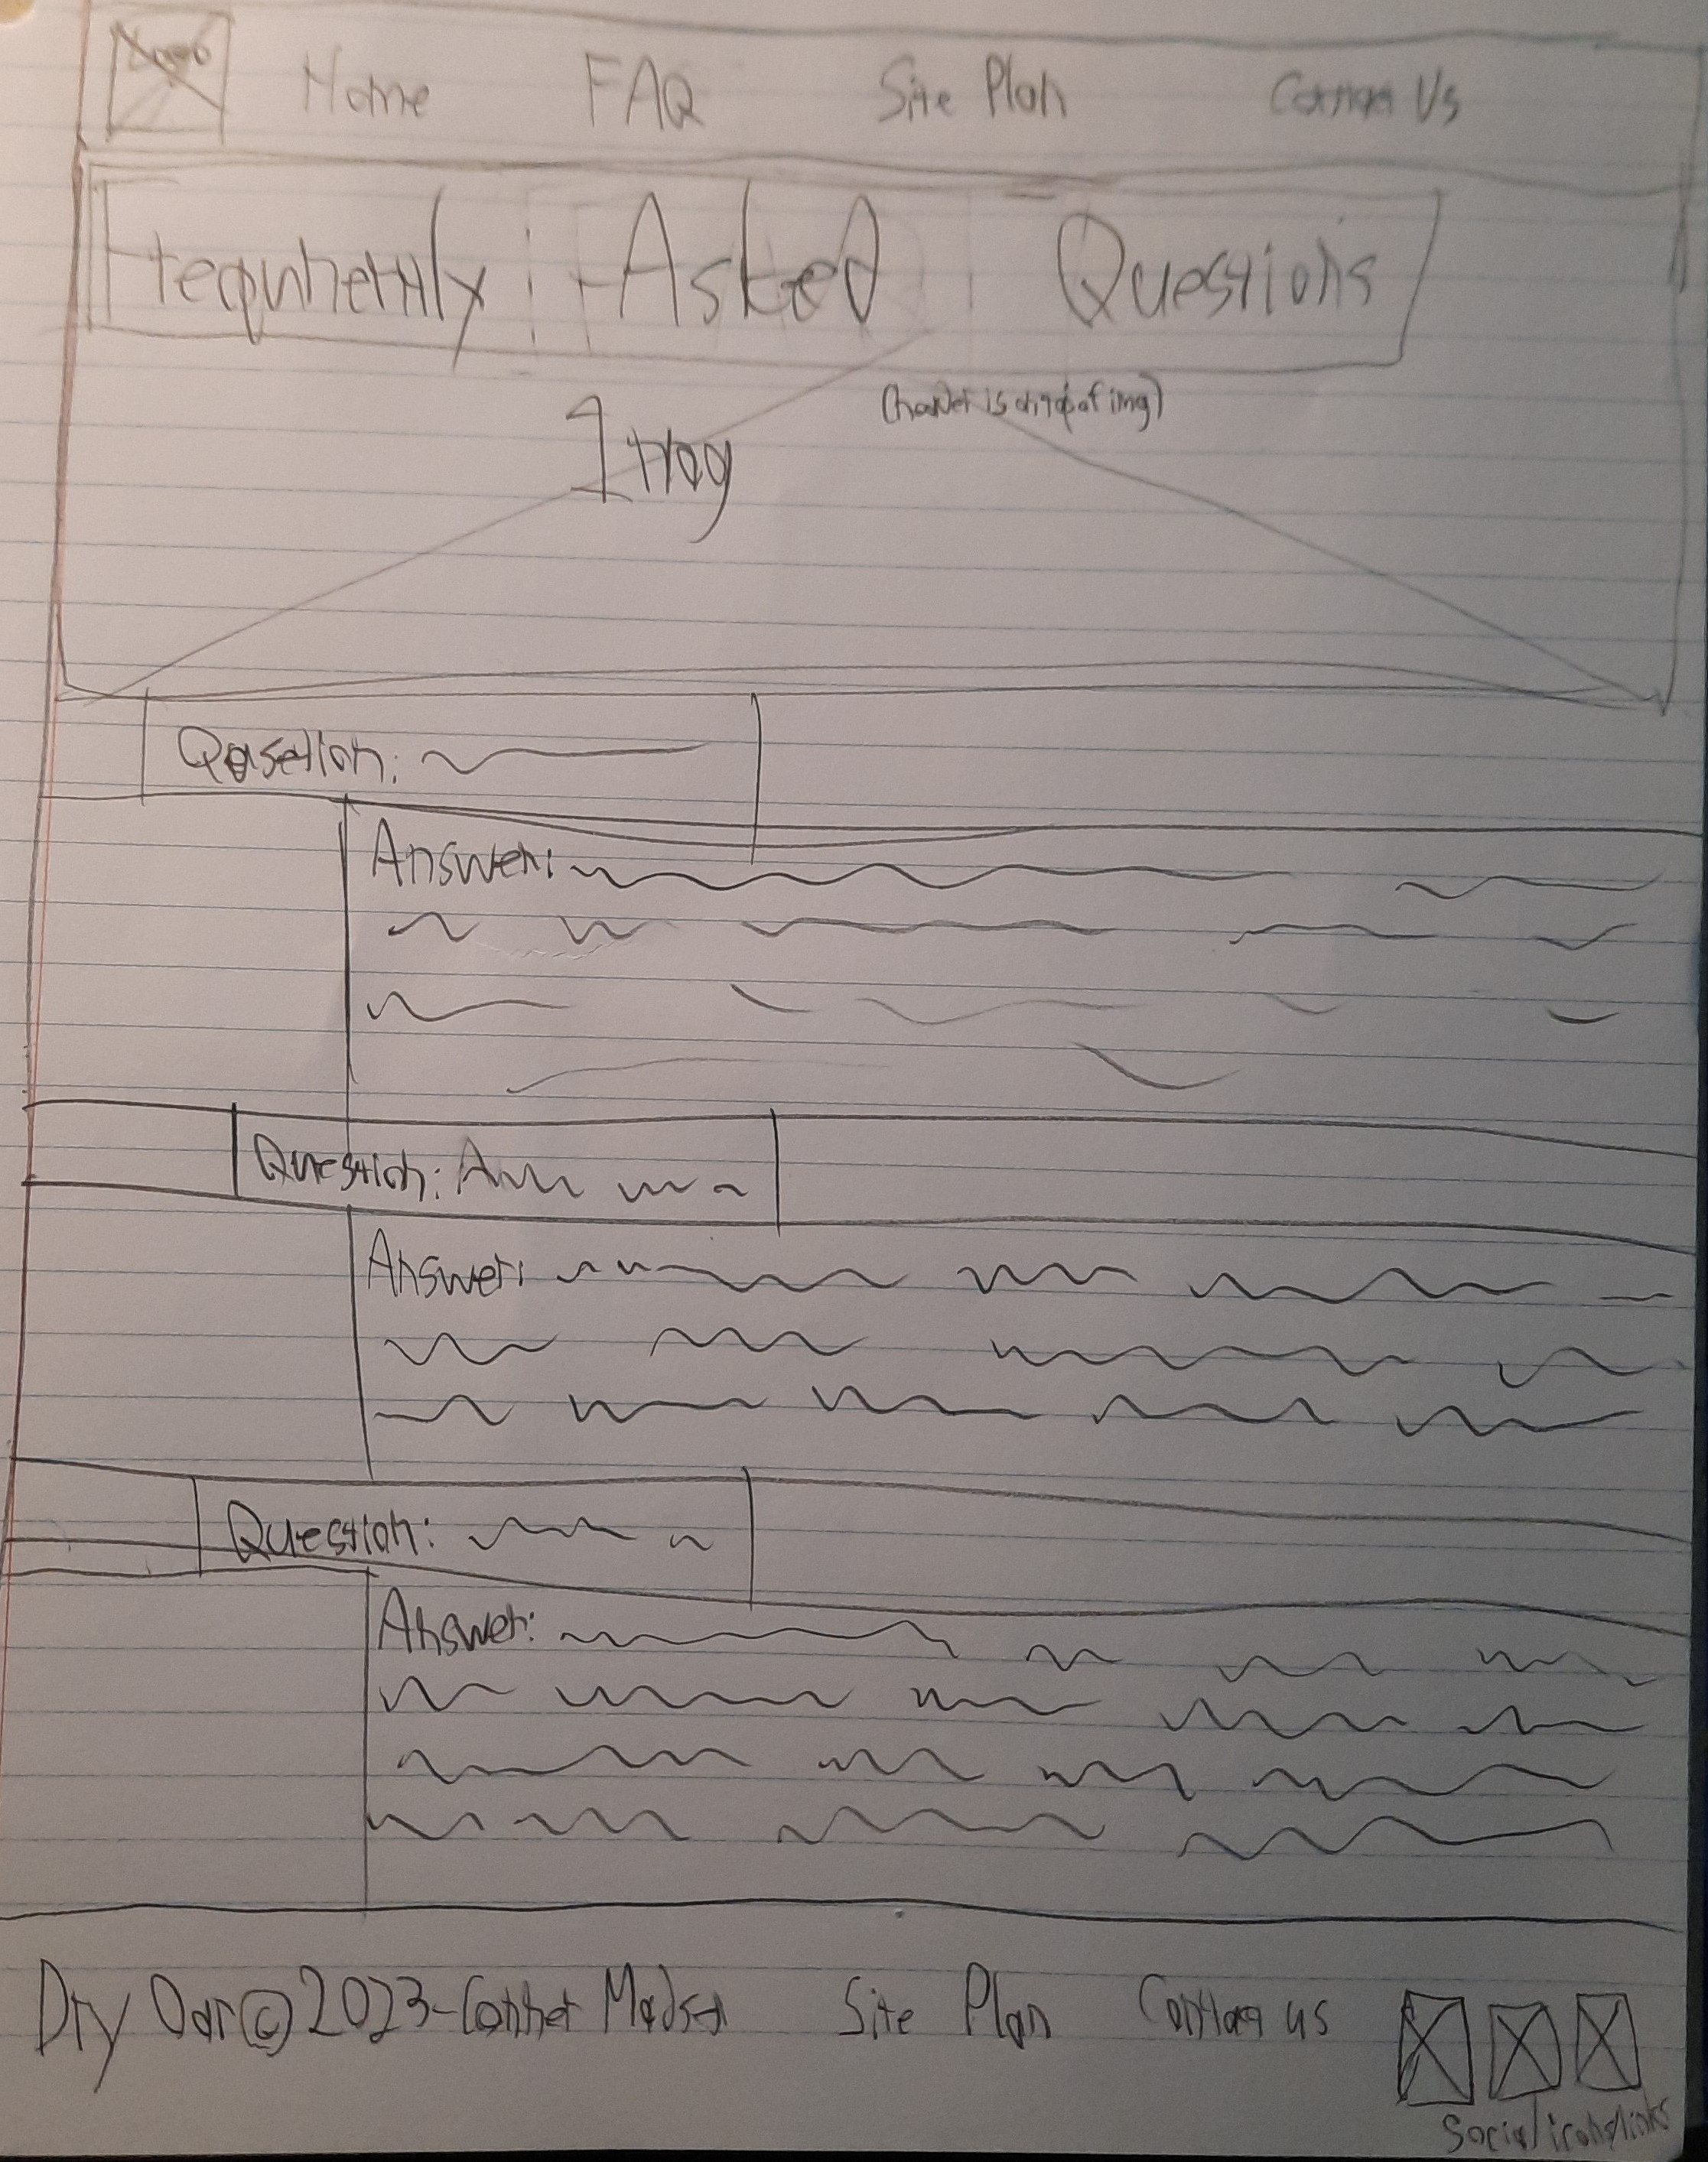 Logo Home FAQ Site Plan Contact Us
Frequhently Asked Questions
(header is on top of img)
Img
Qusetion:
Answer:
Question:
Answer:
Question:
Answer:
Dry Oar © 2023-Conner Madsen Site Plan Contact us
Social icons/links